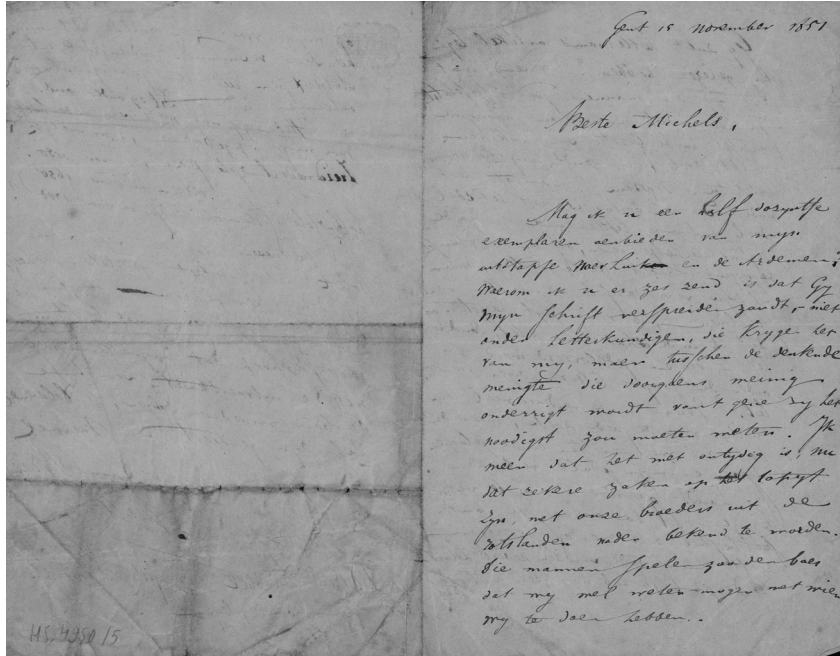 Gent 15 november 1851
Beste Michels,
Mag ik u een half dozyntje
exemplaren aenbieden van myn
uitstapje naer Luik en de Ardennen;
Waerom ik u er zes zend is dat Gy
myn schrift verspreiden zoudt, niet
onder letterkundigen, die krygen het
van my, maer tusschen de denkende
menigte die doorgaens weinig
onderrigt wordt van 't gene zy het
noodigst zou moeten weten. Ik
meen dat het niet ontydig is, nu
dat zekere zaken op het tapyt
zyn, met onze broeders uit de
rotslanden nader bekend te worden.
Die mannen spelen zoo den baes
dat wy wel weten mogen met wien
wy te doen hebben.
HS. 4950/5